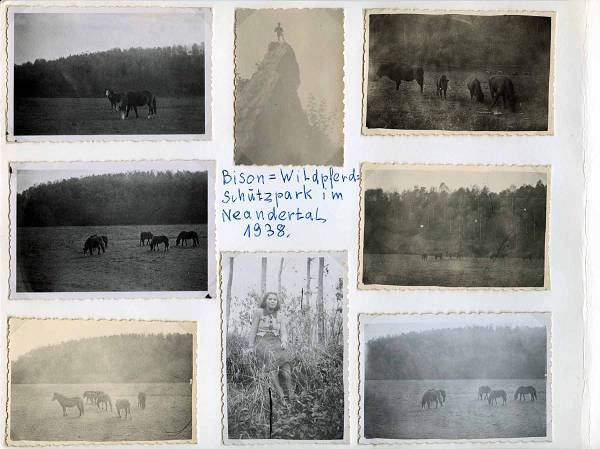 Bison=Wildpferd=
Schützpark im
Neandertal
1938.